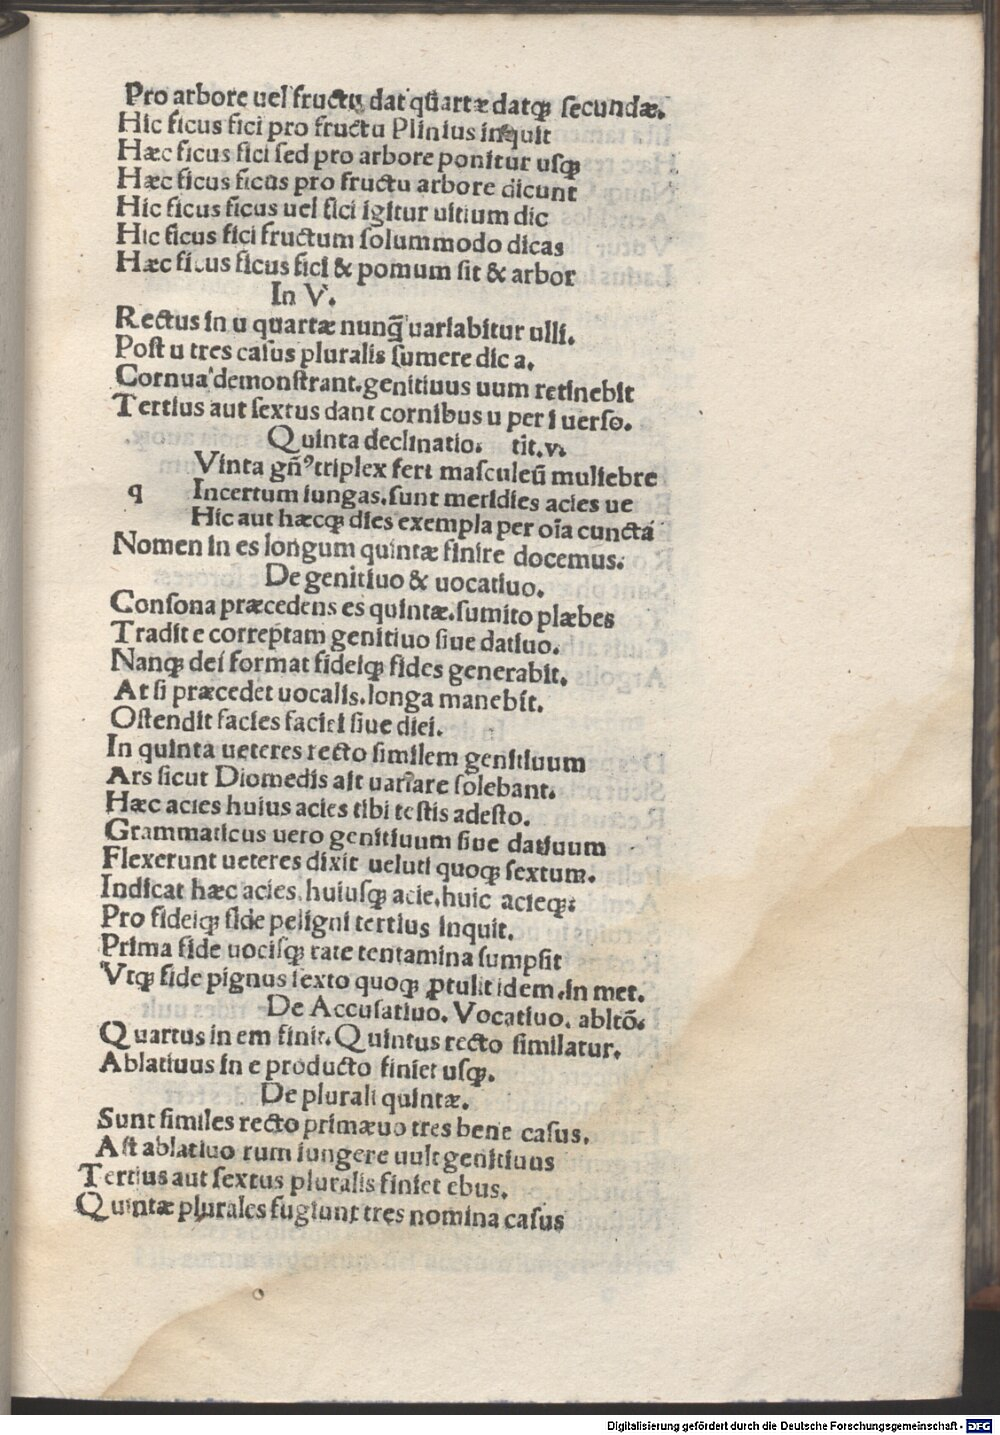 Pro arbore uel fructu dat quartæ datqꝫ ſecundæ.
Hic ficus fici pro fructu Plinius inquit
Hæc ficus fici ſed pro arbore ponitur uſqꝫ
Hæc ficus ficus pro fructu arbore dicunt
Hic ficus ficus uel fici igitur uitium dic
Hic ficus fici fructum ſolummodo dicas
Hæc ficus ficus fici & pomum ſit & arbor
In V.
Rectus in u quartæ nunq̄ uariabitur ulli.
Poſt u tres caſus pluralis ſumere dic a.
Cornua demonſtrant.genitiuus uum retinebit
Tertius aut ſextus dant cornibus u per i uerſo.
Quinta declinatio. tit.v.
Vinta gñꝰ triplex fert maſculeū muliebre
q Incertum iungas.ſunt meridies acies ue
Hic aut hæcqꝫ dies exempla per oīa cuncta
Nomen in es longum quintæ finire docemus.
De genitiuo & uocatiuo.
Conſona præcedens es quintæ.ſumito plæbes
Tradit e correptam genitiuo ſiue datiuo.
Nanqꝫ dei format fideiqꝫ fides generabit.
At ſi præcedet uocalis.longa manebit.
Oſtendit facies faciei ſiue diei.
In quinta ueteres recto ſimilem genitiuum
Ars ſicut Diomedis ait uariare ſolebant.
Hæc acies huius acies tibi teſtis adeſto.
Grammaticus uero genitiuum ſiue datiuum
Flexerunt ueteres dixit ueluti quoqꝫ ſextum.
Indicat hæc acies.huiuſqꝫ acie.huic acieqꝫ:
Pro fideiqꝫ fide peligni tertius inquit.
Prima fide uociſqꝫ rate tentamina ſumpſit
Vtqꝫ fide pignus ſexto quoqꝫ ꝓtulit idem.in met.
De Accuſatiuo. Vocatiuo. abltō.
Quartus in em finit.Quintus recto ſimilatur.
Ablatiuus in e producto finiet uſqꝫ.
De plurali quintæ.
Sunt ſimiles recto primæuo tres bene caſus.
Aſt ablatiuo rum iungere uult genitiuus
Tertius aut ſextus pluralis finiet ebus.
Quintæ plurales fugiunt tres nomina caſus
Digitalisierung gefördert durch die Deutsche Forschungsgemeinschaft - DFG